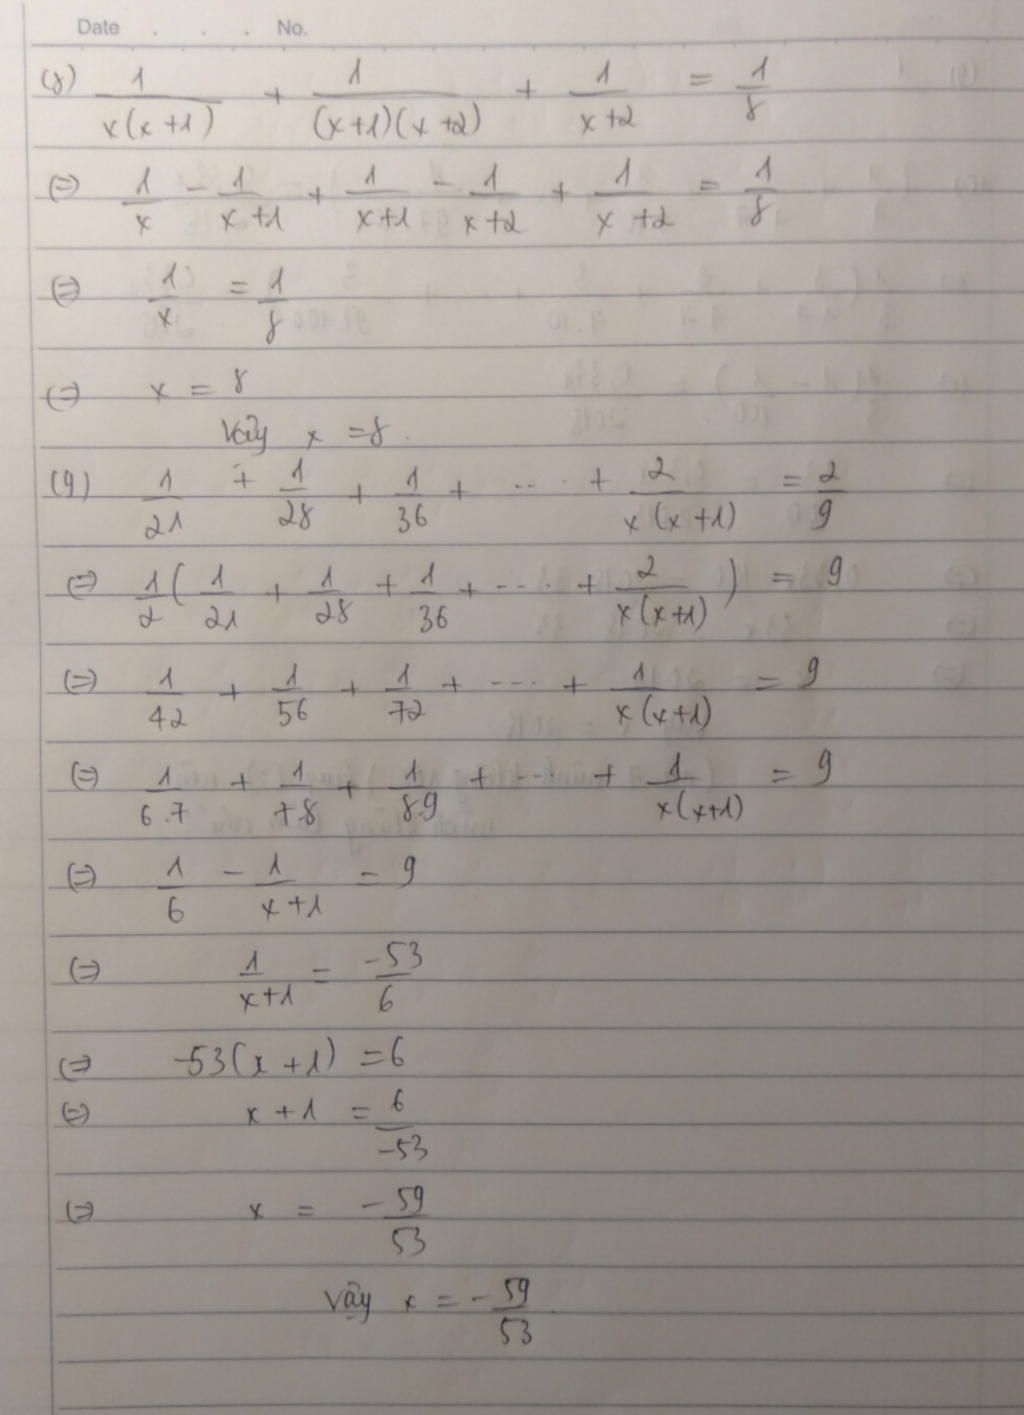 Date . . . No.
(8) 1/(x(x+1)) + 1/((x+1)(x+2)) + 1/(x+2) = 1/8
(=) 1/x - 1/(x+1) + 1/(x+1) - 1/(x+2) + 1/(x+2) = 1/8
(=) 1/x = 1/8
(=) x = 8
Vậy x = 8.
(9) 1/21 + 1/28 + 1/36 + ... + 2/(x(x+1)) = 2/9
(=) 1/2(1/21 + 1/28 + 1/36 + ... + 2/(x(x+1))) = 9
(=) 1/42 + 1/56 + 1/72 + ... + 1/(x(x+1)) = 9
(=) 1/6.7 + 1/7.8 + 1/8.9 + ... + 1/(x(x+1)) = 9
(=) 1/6 - 1/(x+1) = 9
(=) 1/(x+1) = -53/6
(=) -53(x+1) = 6
(=) x+1 = 6/-53
(=) x = -59/53
Vậy x = -59/53.